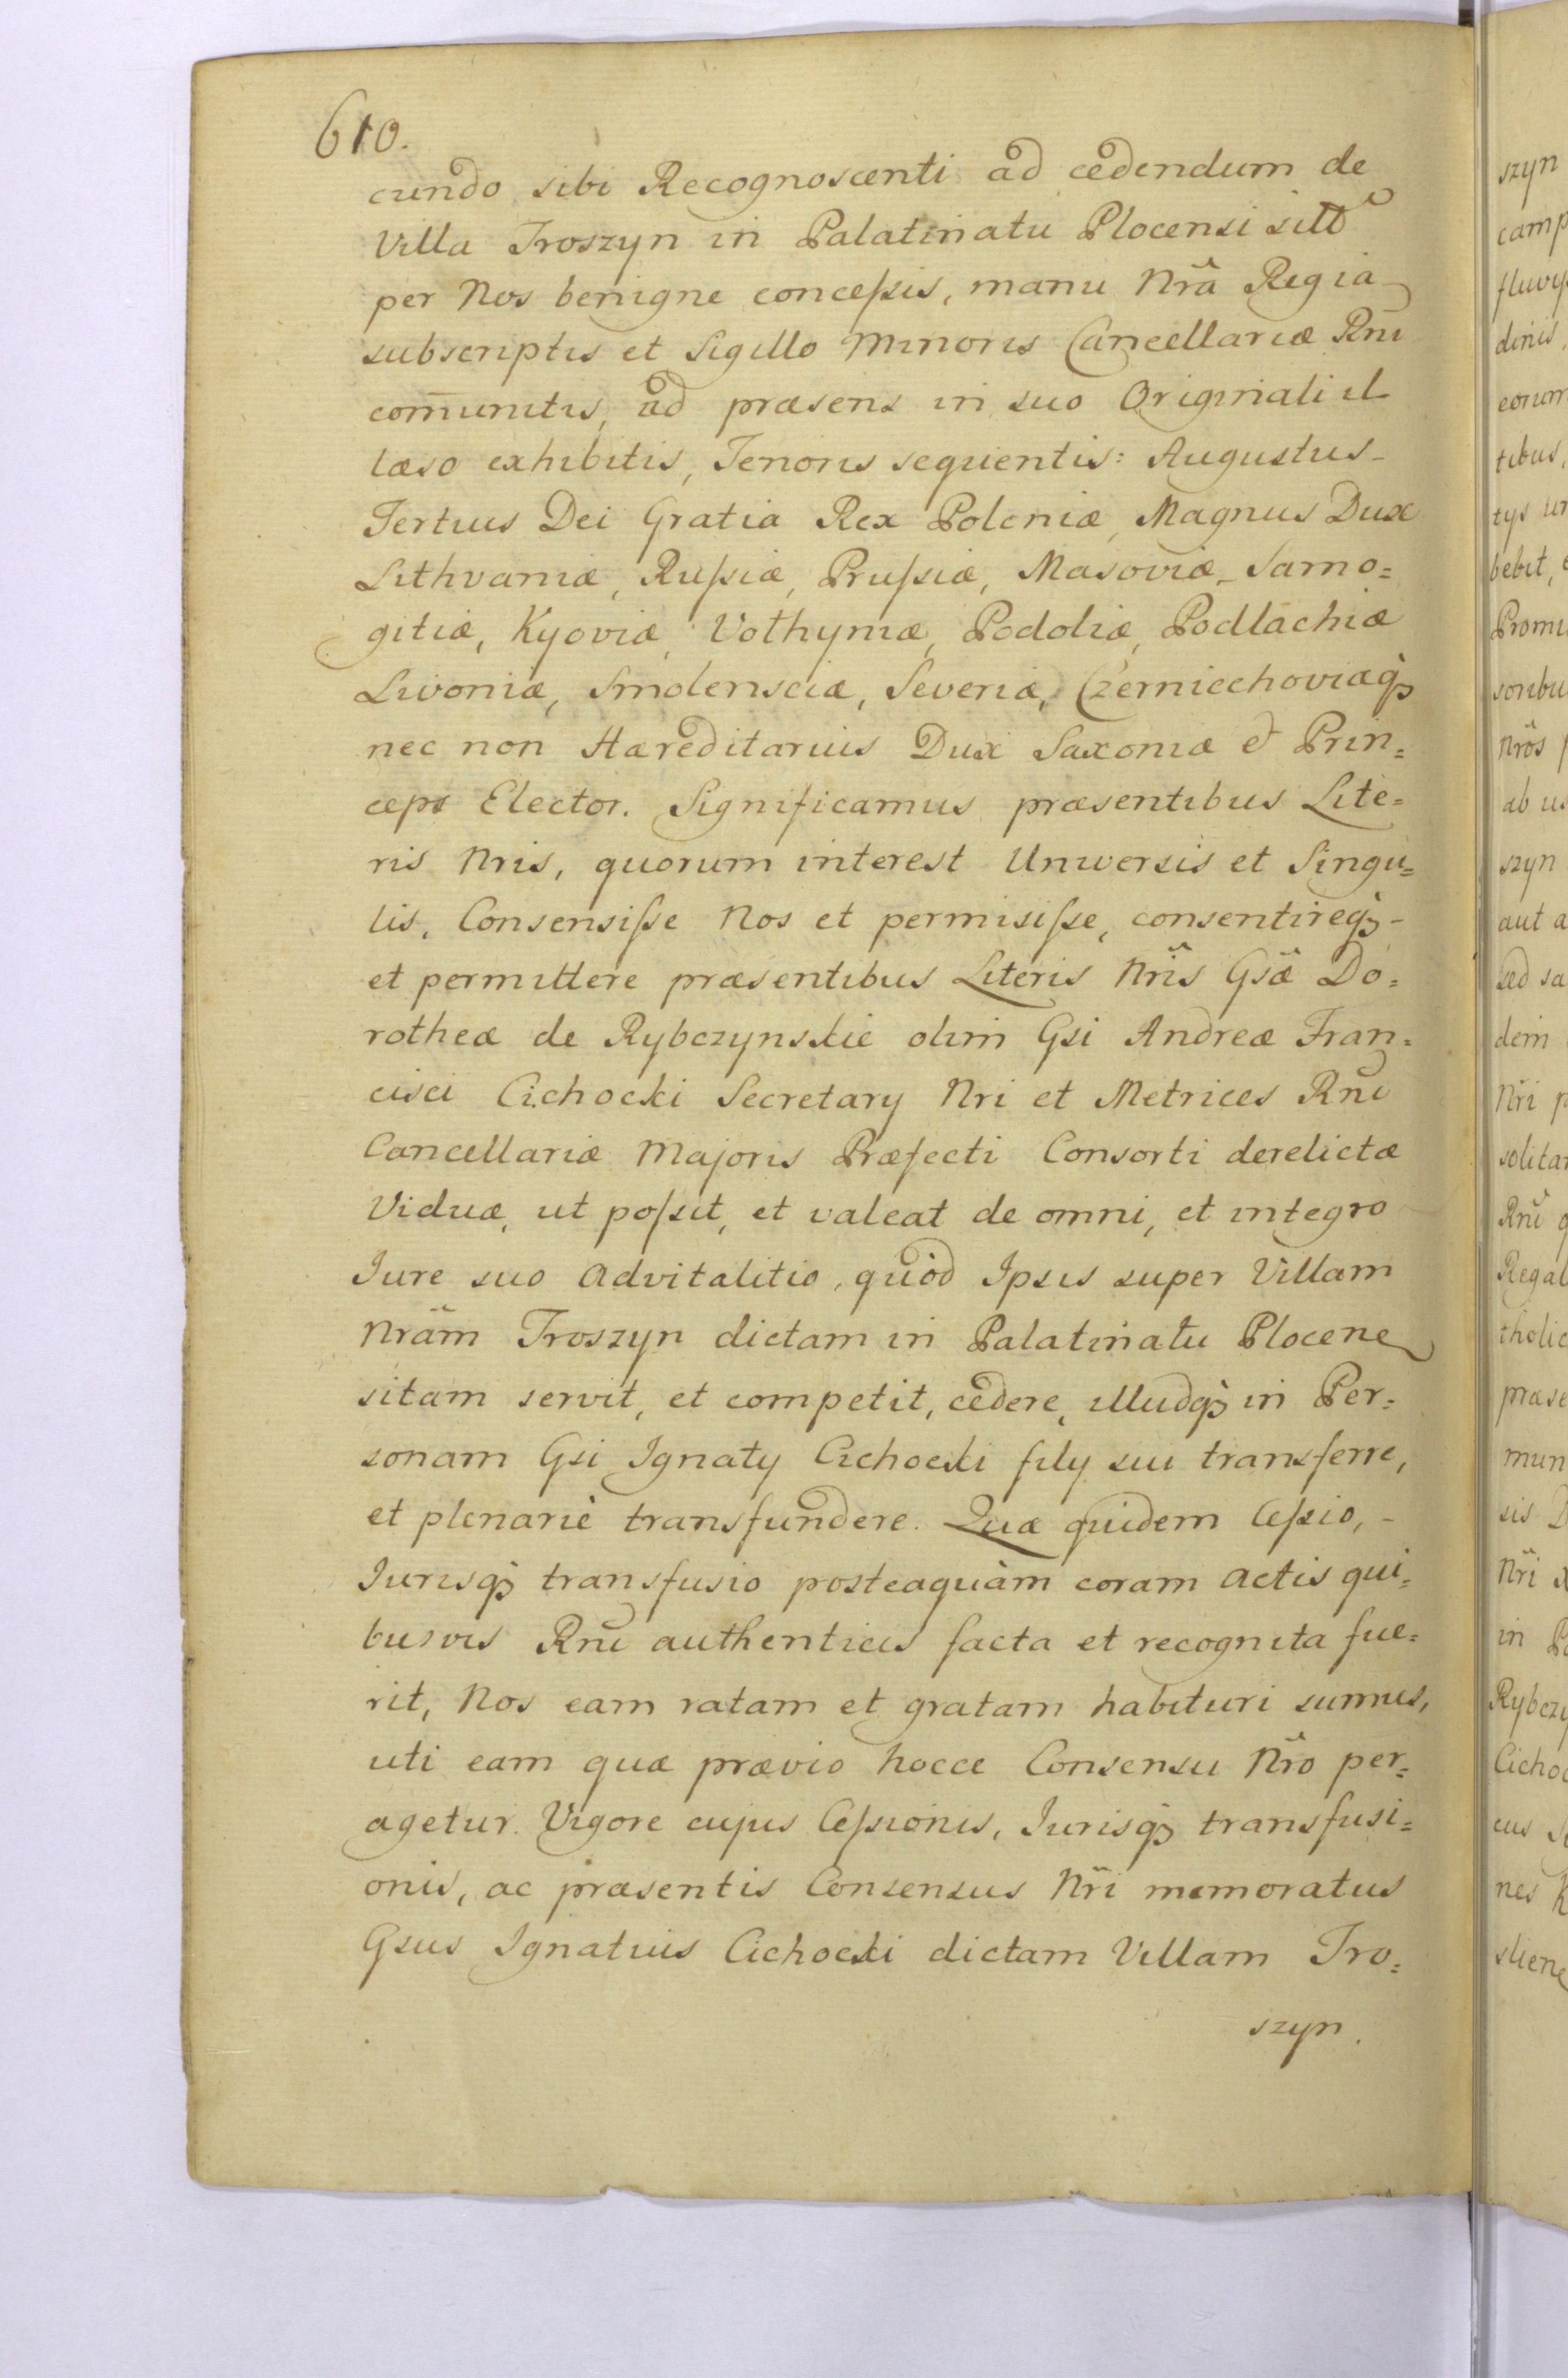 610.
cundo sibi Recognoscenti ad cedendum de
Villa Troszyn in Palatinatu Plocensi sitâ
per Nos benigne conceſsis, manu Nr̃a Regia
subscriptis et Sigillo Minoris Cancellariæ Rñi
com̃unitis, ad præsens in suo Originali il
læso exhibitis, Tenoris sequentis: Augustus
Tertius Dei Gratia Rex Poloniæ, Magnus Dux
Lithvaniæ, Ruſsiæ, Pruſsiæ, Masoviæ, Samo=
gitiæ, Kyoviæ, Volhyniæ, Podoliæ, Podlachiæ
Livoniæ, Smolensciæ, Severiæ, Czerniechoviæq́3
nec non Hæreditarius Dux Saxoniæ et Prin=
ceps Elector. Significamus præsentibus Lite=
ris Nris, quorum interest Universis et Singu=
lis, Consensiſse Nos et permisiſse, consentireq́3 -
et permittere præsentibus Literis Nr̃is Gs̃æ Do=
rotheæ de Rybczynskie olim Gsi Andreæ Fran=
cisci Cichocki Secretary Nri et Metrices Rñi
Cancellariæ Majoris Præfecti Consorti derelictæ
Viduæ, ut poſsit, et valeat de omni, et integro
Iure suo advitalitio, quòd Ipsis super Villam
Nr̃am Troszyn dictam in Palatinatu Plocene
sitam servit, et competit, cedere, illudq́3 in Per=
sonam Gsi Ignaty Cichocki fily sui transferre,
et plenariè transfundere. Quæ quidem Ceſsio, -
Iurisq́3 transfusio posteaquàm coram actis qui=
busvis Rñi authenticis facta et recognita fue=
rit, Nos eam ratam et gratam habituri sumus,
uti eam quæ prævio hocce Consensu Nr̃o per=
agetur. Vigore cujus Ceſsionis, Iurisq́3 transfusi=
onis, ac præsentis Consensus Nr̃i memoratus
Gsus Ignatius Cichocki dictam Villam Tro=
szyn.